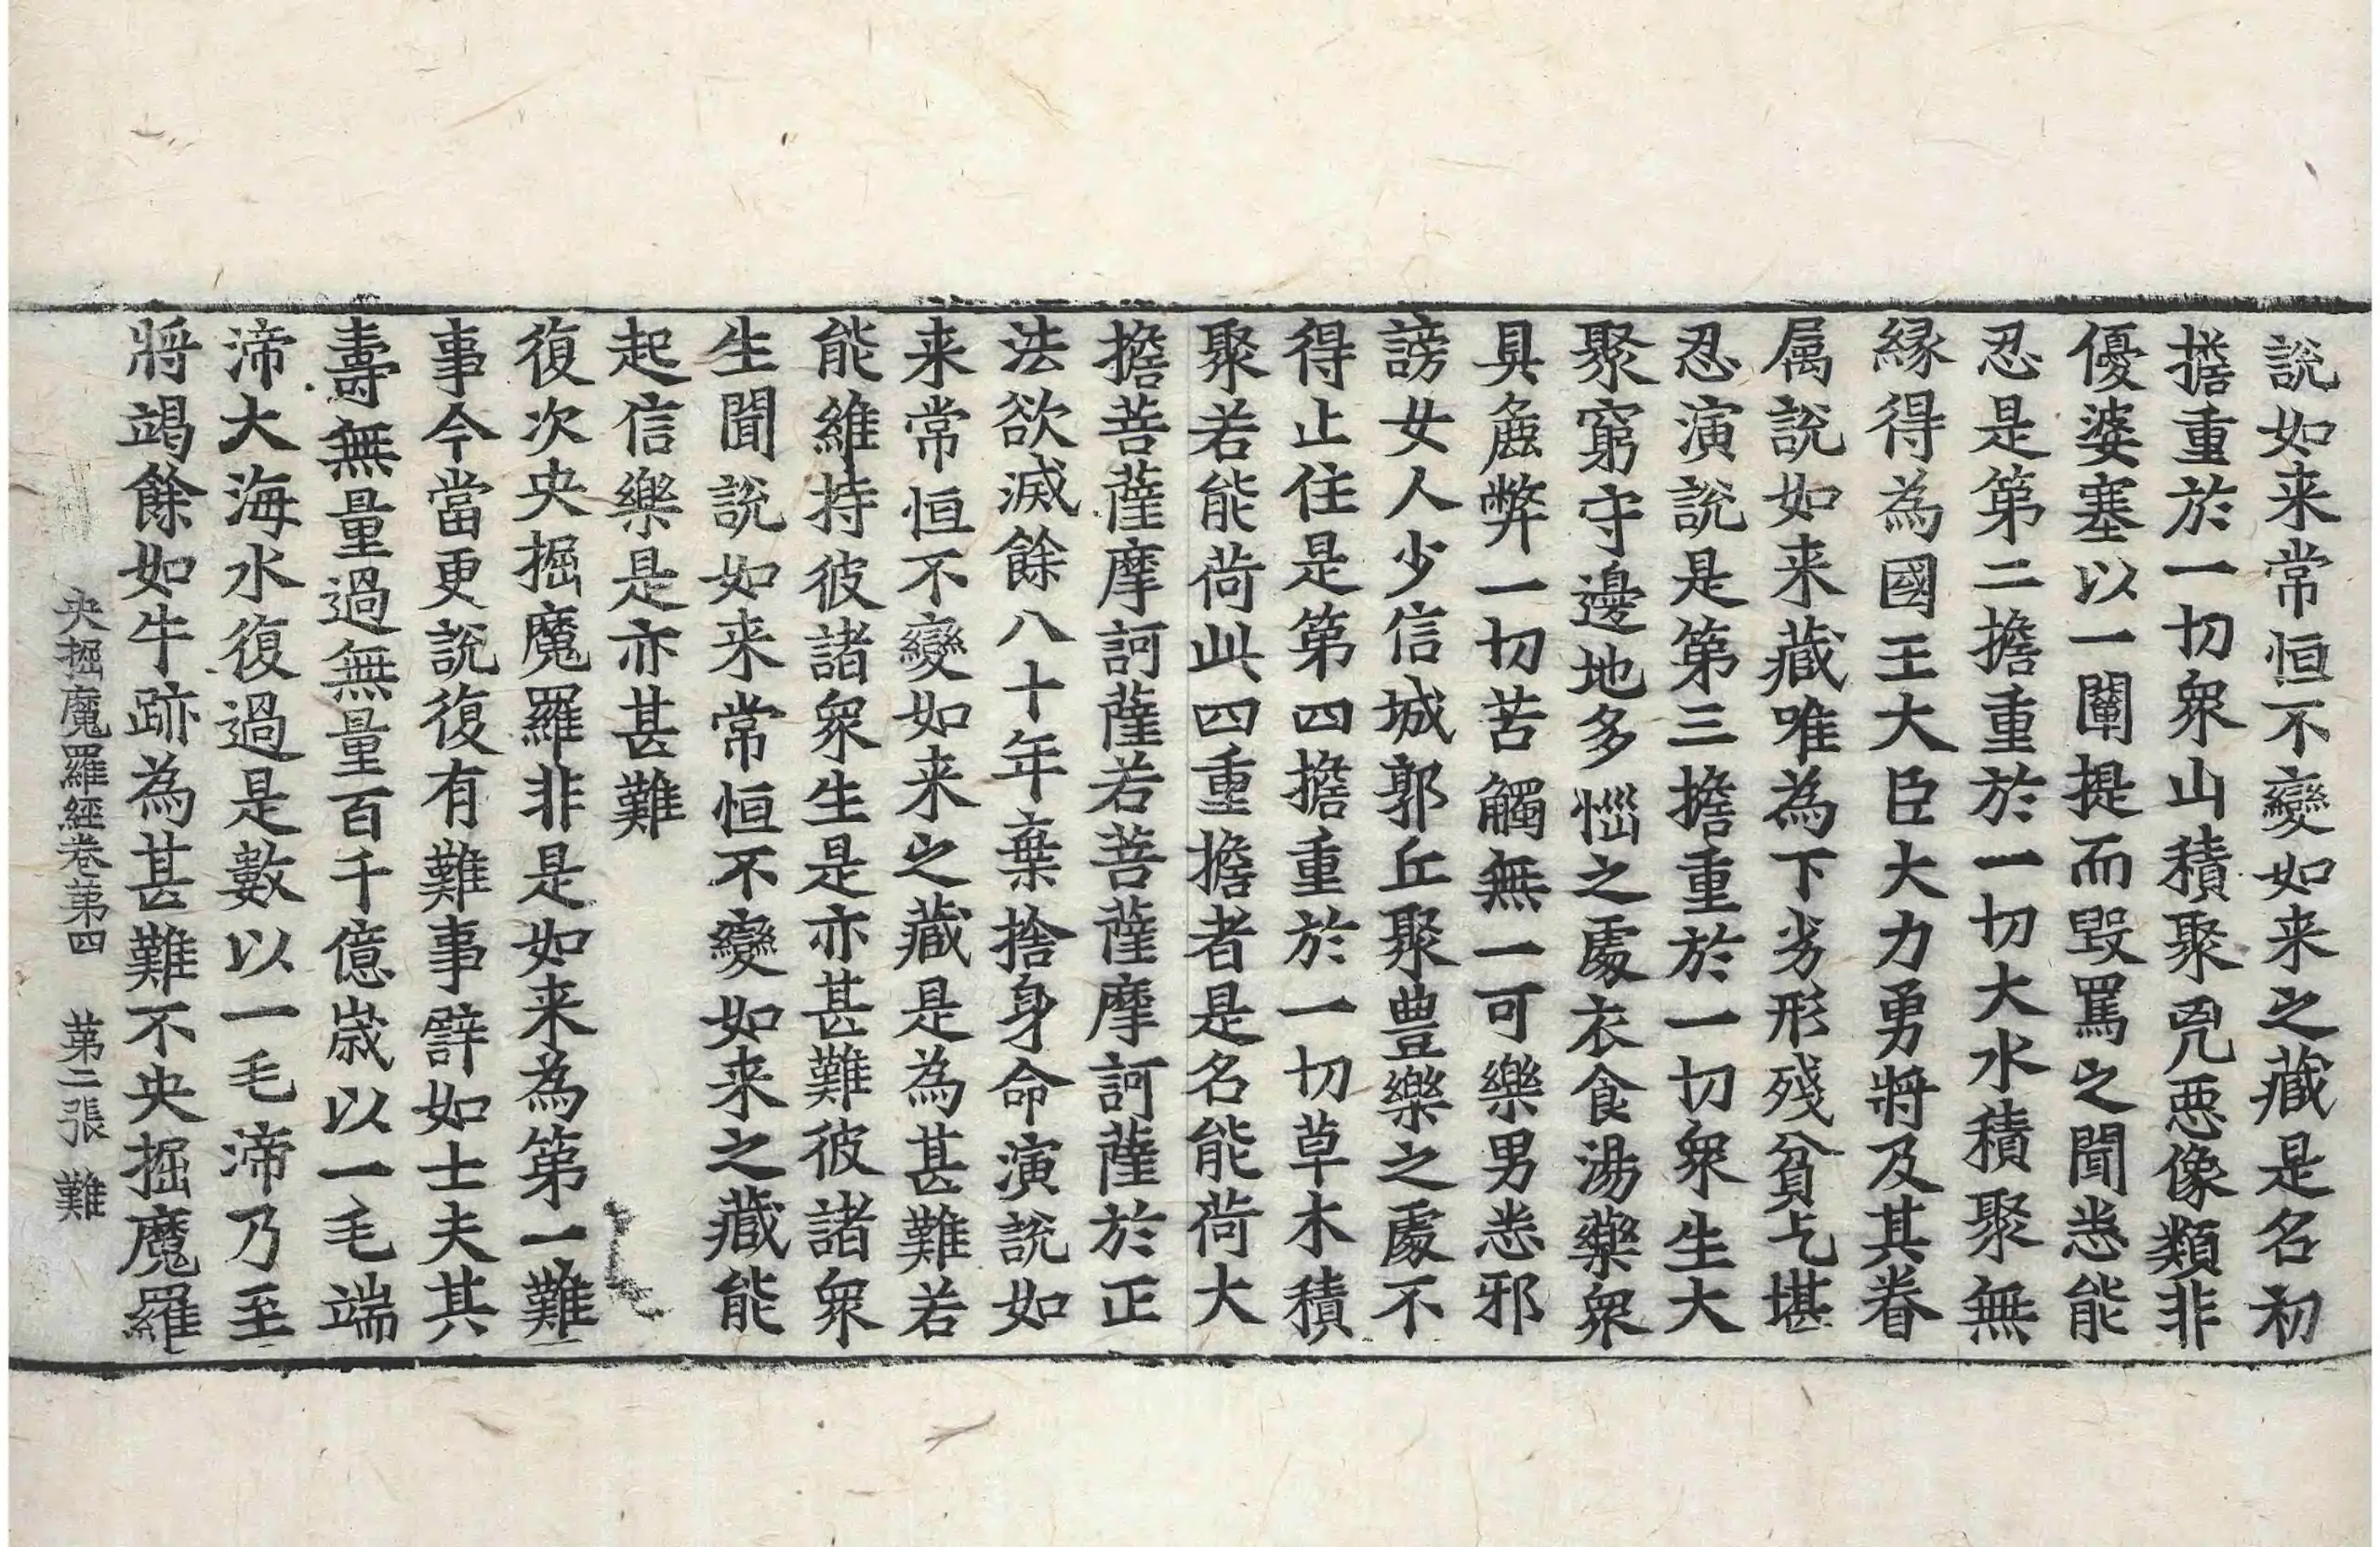 說如来常恒不變如来之藏是名初
擔重於一切衆山積聚兇惡像類非
優婆塞以一闡提而毀罵之聞悉能
忍是第二擔重於一切大水積聚無
緣得為國王大臣大力勇將及其眷
属說如来藏唯為下劣形殘貧乞堪
忍演說是第三擔重於一切衆生大
聚窮守邊地多惱之處衣食湯藥衆
具麁弊一切苦觸無一可樂男悉邪
謗女人少信城郭丘聚豊樂之處不
得止住是第四擔重於一切草木積
聚若能荷此四重擔者是名能荷大
擔菩薩摩訶薩若菩薩摩訶薩於正
法欲滅餘八十年棄捨身命演說如
来常恒不變如来之藏是為甚難若
能維持彼諸衆生是亦甚難彼諸衆
生聞說如来常恒不變如来之藏能
起信樂是亦甚難
復次央掘魔羅非是如来為第一難
事今當更說復有難事譬如士夫其
壽無量過無量百千億歳以一毛端
渧大海水復過是數以一毛渧乃至
將竭餘如牛跡為甚難不央掘魔羅
央掘魔羅經卷第四 第二張 難